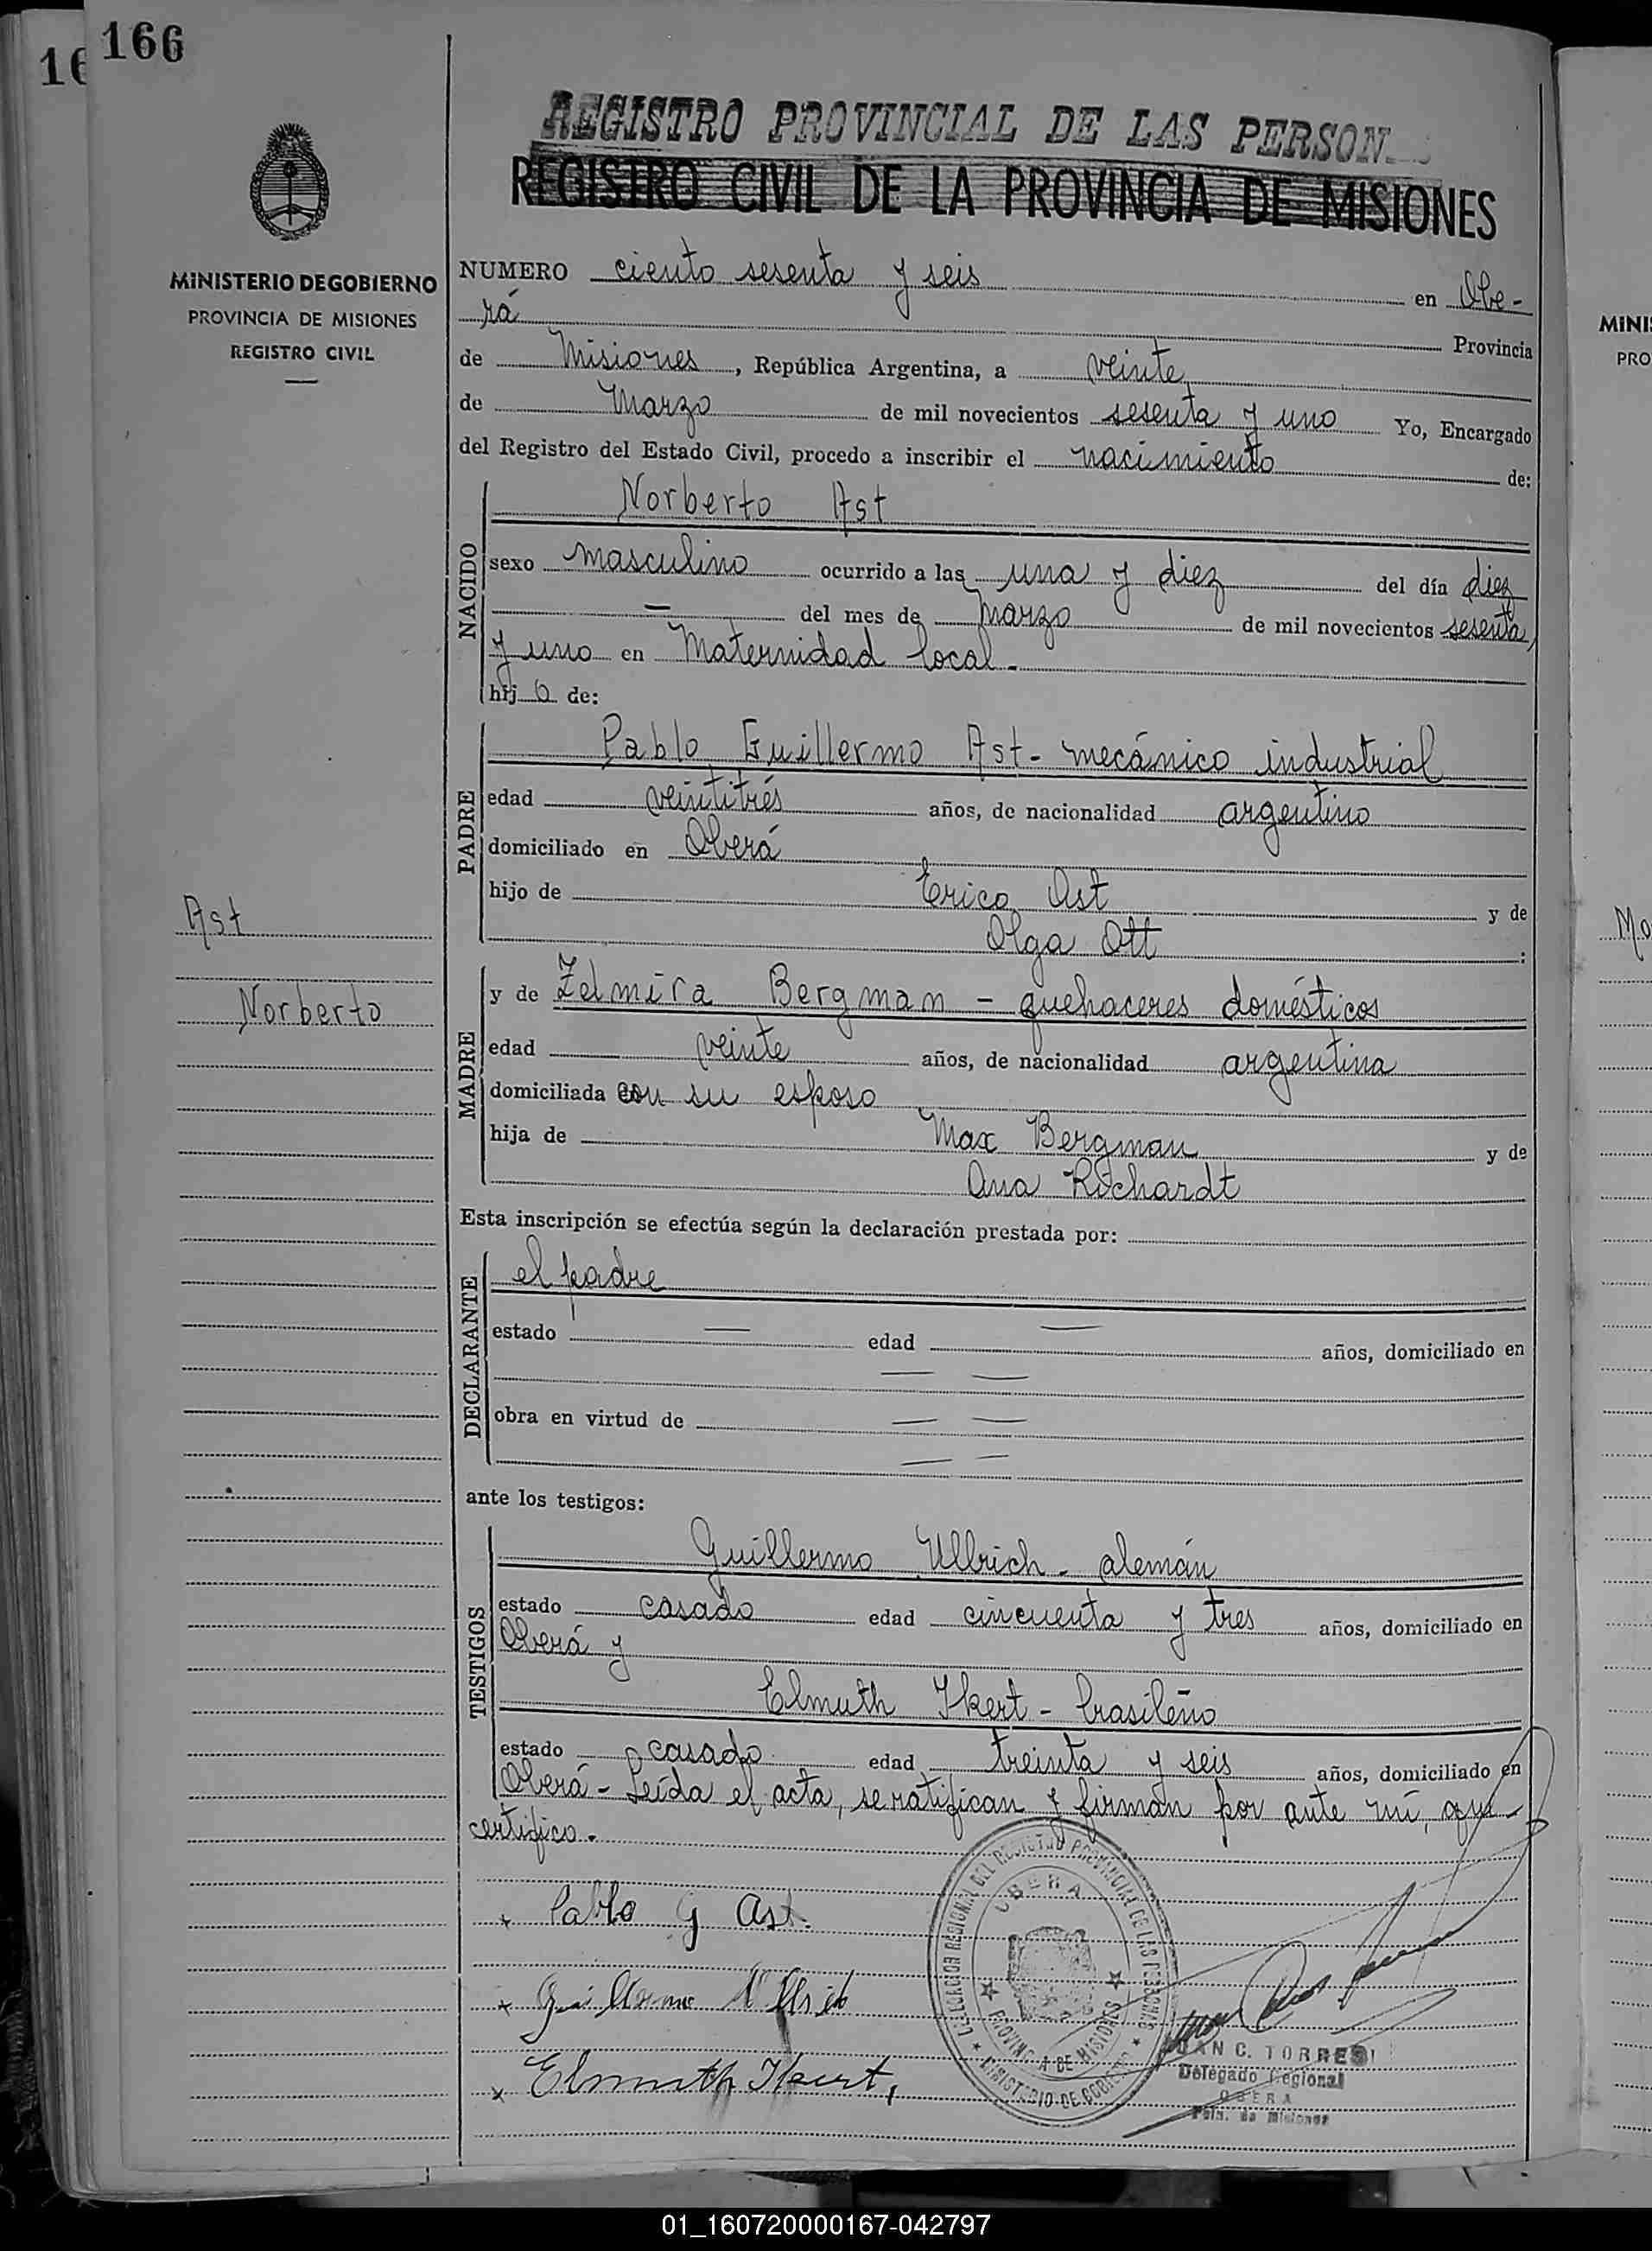 166
16
MINISTERIO DE GOBIERNO
PROVINCIA DE MISIONES
REGISTRO CIVIL
Ast
Norberto
REGISTRO PROVINCIAL DE LAS PERSON
REGISTRO CIVIL DE LA PROVINCIA DE MISIONES
NUMERO ciento sesenta y seis en Obe-
rá Provincia
de Misiones, República Argentina, a veinte
de Marzo de mil novecientos sesenta y uno Yo, Encargado
del Registro del Estado Civil, procedo a inscribir el nacimiento de:
NACIDO
Norberto Ast
sexo masculino ocurrido a las una y diez del día diez
— del mes de Marzo de mil novecientos sesenta
y uno en Maternidad local-
hij o de:
PADRE
Pablo Guillermo Ast- mecánico industrial
edad veintitrés años, de nacionalidad argentino
domiciliado en Oberá
hijo de Erico Ast y de
Olga Ott :
MADRE
y de Zelmira Bergman - quehaceres domésticos
edad veinte años, de nacionalidad argentina
domiciliada con su esposo
hija de Max Bergman y de
Ana Richardt
Esta inscripción se efectúa según la declaración prestada por:
DECLARANTE
el padre
estado — edad — años, domiciliado en
— —
obra en virtud de — —
— —
ante los testigos:
TESTIGOS
Guillermo Ullrich- alemán
estado casado edad cincuenta y tres años, domiciliado en
Oberá y
Elmuth Ikert- brasileño
estado casado edad treinta y seis años, domiciliado en
Oberá- Leída el acta, se ratifican y firman por ante mí, que
certifico.-
Pablo G Ast.
Guillermo Ullrich
Elmuth Ikert,
DELEGACION REGIONAL DEL REGISTRO PROVINCIAL DE LAS PERSONAS
OBERA
PROVINCIA DE MISIONES
MINISTERIO DE GOBIERNO
JUAN C. TORRES
Delegado Regional
OBERA
Pcia. de Misiones
MINIS
PRO
Mo
01_160720000167-042797